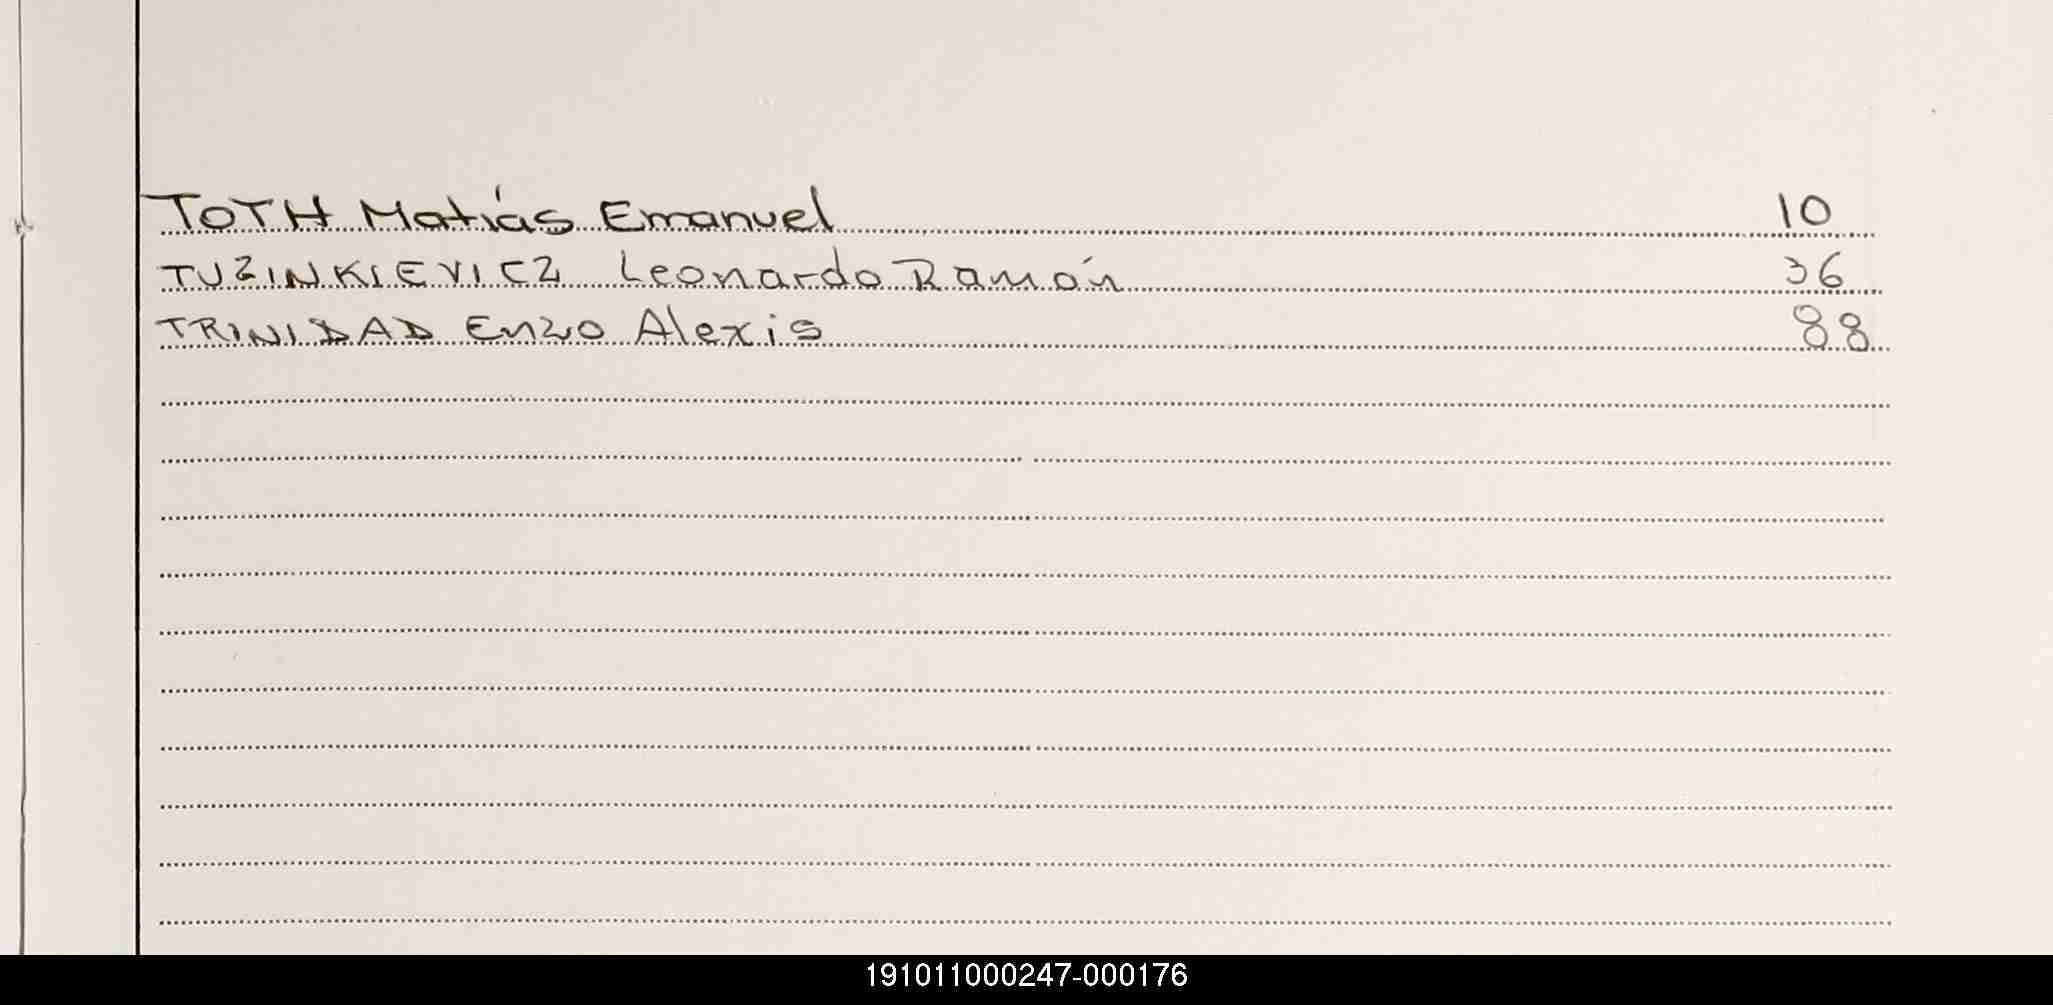 TOTH Matías Emanuel 10
TUZINKIEVICZ Leonardo Ramón 36
TRINIDAD Enzo Alexis 88
191011000247-000176